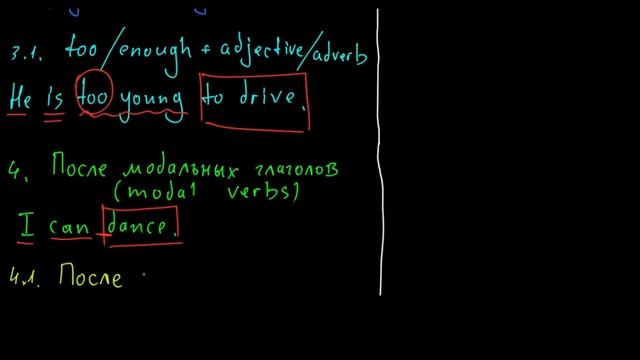 3.1. too/enough + adjective/adverb
He is too young to drive.
4. После модальных глаголов
(modal verbs)
I can dance.
4.1. После